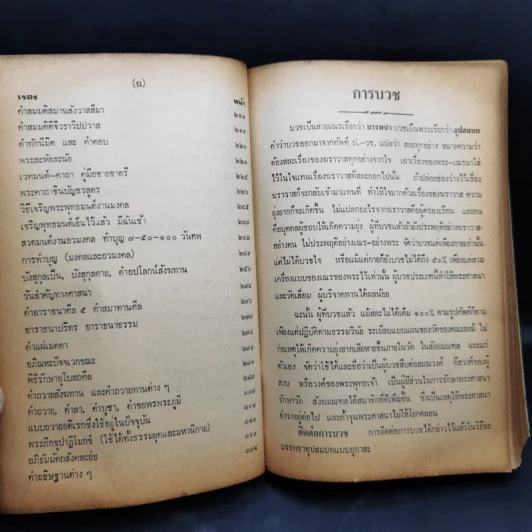 (ฉ)
เรื่อง หน้า
คำสมมติสมานสังวาสสีมา ๒๑๗
คำสมมติติจีวราวิปปวาส
คำทักนิมิต และ คำตอบ
พระสะหัสสะนัย
เวทมนต์-คาถา คู่มือชายชาตรี
พระคาถาชินบัญชรสูตร
วิธีเจริญพระพุทธมนต์งานมงคล
เจริญพุทธมนต์เย็นไว้แล้ว มีฉันเช้า
สวดมนต์งานอวมงคล ทำบุญ ๗-๕๐-๑๐๐ วันศพ
การทำบุญ (มงคลและอวมงคล)
บังสุกุลเป็น, บังสุกุลตาย, คำอปโลกน์สังฆทาน
วันสำคัญทางศาสนา
คำอาราธนาศีล ๕ คำสมาทานศีล
อาราธนาปริตร อาราธนาธรรม
คำแผ่เมตตา
อภิณหะปัจจเวกขณะ
พิธีรักษาอุโบสถศีล
คำถวายสังฆทาน และคำถวายทานต่าง ๆ
คำถวาย, คำลา, คำบูชา, คำขอพรพระภูมิ
แบบถวายอดิเรกซึ่งใช้อยู่ในปัจจุบัน
พระภิกขุปาฏิโมกข์ (ใช้ได้ทั้งธรรมยุตและมหานิกาย)
อภิธัมมัตถสังคหะย่อ
คำอธิษฐานต่าง ๆ
การบวช
บวชเป็นสามเณรเรียกว่า บรรพชา บวชเป็นพระเรียกว่า อุปสมบท
คำว่าบวชออกมาจากศัพท์ ป,-วช, แปลว่า สละทุกอย่าง หมายความว่า
ต้องสละเรื่องของฆราวาสทุกอย่างวางใจ เอาเรื่องของพระ-เณรมาใส่
ไว้ในใจแทนเรื่องฆราวาสที่สละออกไปนั้น ถ้าปล่อยช่องว่างไว้เรื่อง
ฆราวาสก็จะกลับเข้ามาแทนที่ ทำให้ใจมากด้วยเรื่องของฆราวาส ความ
ยุ่งยากก็จะเกิดขึ้น ไม่แปลกอะไรจากฆราวาสผู้ครองเรือน และตน
คือบุคคลผู้ชอบให้เกิดความยุ่ง ผู้ที่บวชแล้วถ้ายังประพฤติอย่างฆราวาส-
อย่างตน ไม่ประพฤติอย่างเณร-อย่างพระ จัดว่าบวชแต่เพียงกายเท่านั้น
แต่ไม่ได้บวชใจ หรือแม้แต่กายก็ยังบวชไม่ถึง ๕๐% เพียงแต่สวม
เครื่องแบบของเณรของพระไว้เท่านั้น ผู้บวชประเภทนี้ทำให้พระศาสนา
และวัดเสื่อม ผู้บริจาคทานได้ผลน้อย
ฉะนั้น ผู้ที่บวชแล้ว แม้สละไม่ได้เต็ม ๑๐๐% ตามรูปศัพท์ก็ตาม
เพียงแต่ปฏิบัติตามธรรมวินัย ระเบียบแบบแผนของวัดของคณะสงฆ์ ไม่
ก่อเหตุให้เกิดความยุ่งยากเสียหายขึ้นภายในวัด ในสังฆมณฑล และแก่
ตัวเอง จัดว่าใช้ได้และชื่อว่าเป็นผู้บวชสืบต่อสมณวงศ์ คือวงศ์ของผู้
สงบ หรือวงศ์ของพระพุทธเจ้า เป็นผู้มีส่วนในการรักษาพระศาสนา
รักษาวัด สังฆมณฑลให้สมาธิศักดิ์ดีขึ้น ซึ่งเป็นเหตุให้พระศาสนา
ดำรงอยู่ต่อไป และค้ำจุนพระศาสนาไม่ให้โยกคลอน
ติดต่อการบวช การติดต่อการบวชได้กล่าวไว้แล้วในวิธีขอ
บรรพชาอุปสมบทแบบอุกาสะ